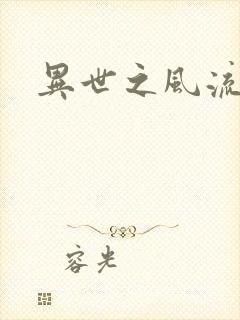 異世之風流
容光